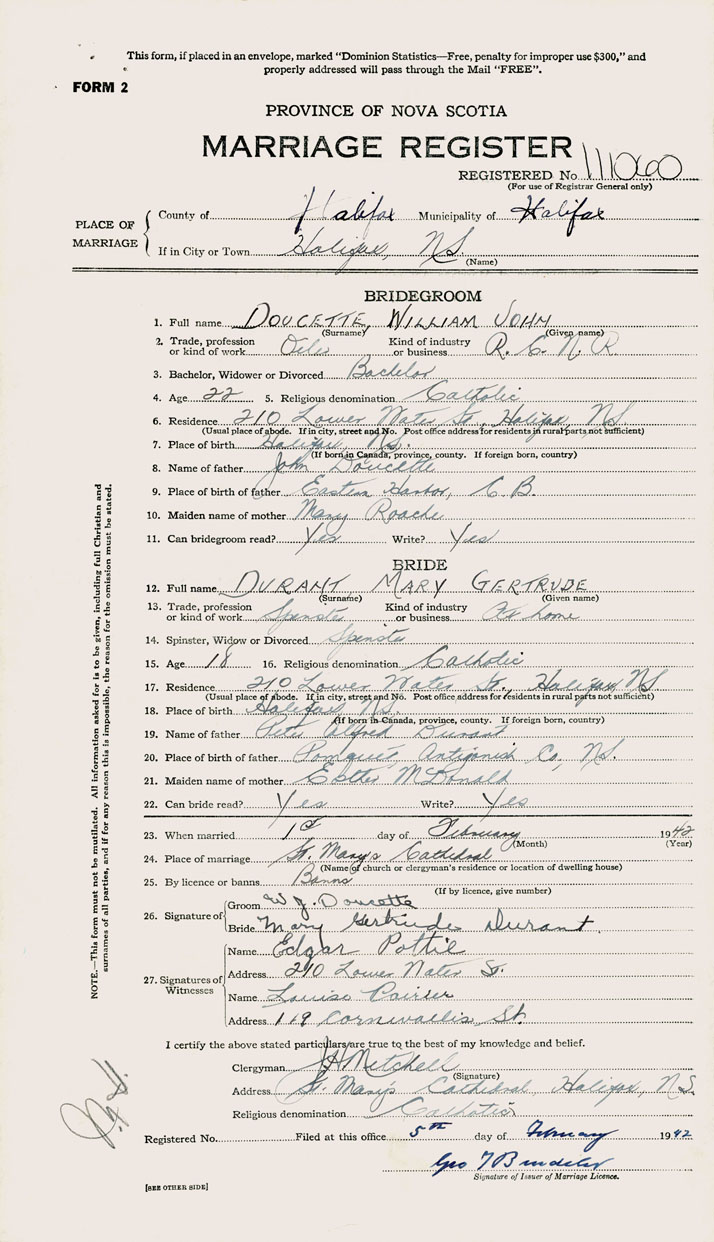 This form, if placed in an envelope, marked "Dominion Statistics—Free, penalty for improper use $300," and
properly addressed will pass through the Mail "FREE".
FORM 2
PROVINCE OF NOVA SCOTIA
MARRIAGE REGISTER
REGISTERED No.
(For use of Registrar General only)
PLACE OF MARRIAGE
County of Halifax Municipality of Halifax
If in City or Town Halifax, N.S.
(Name)
BRIDEGROOM
1. Full name DOUCETTE, WILLIAM JOHN
(Surname) (Given name)
2. Trade, profession or kind of work Oiler Kind of industry or business R. C. N. R.
3. Bachelor, Widower or Divorced Bachelor
4. Age 22 5. Religious denomination Catholic
6. Residence 210 Lower Water St., Halifax, N.S.
(Usual place of abode. If in city, street and No. Post office address for residents in rural parts not sufficient)
7. Place of birth Halifax, N.S.
(If born in Canada, province, county. If foreign born, country)
8. Name of father John Doucette
9. Place of birth of father Eastern Harbor, C.B.
10. Maiden name of mother Mary Roache
11. Can bridegroom read? Yes Write? Yes
BRIDE
12. Full name DURANT MARY GERTRUDE
(Surname) (Given name)
13. Trade, profession or kind of work Spenster Kind of industry or business At home
14. Spinster, Widow or Divorced Spenster
15. Age 18 16. Religious denomination Catholic
17. Residence 210 Lower Water St., Halifax, N.S.
(Usual place of abode. If in city, street and No. Post office address for residents in rural parts not sufficient)
18. Place of birth Halifax, N.S.
(If born in Canada, province, county. If foreign born, country)
19. Name of father Peter Alfred Durant
20. Place of birth of father Pomquet, Antigonish Co., N.S.
21. Maiden name of mother Esther McDonald
22. Can bride read? Yes Write? Yes
23. When married 1st day of February 1942
(Month) (Year)
24. Place of marriage St. Mary's Cathedral
(Name of church or clergyman's residence or location of dwelling house)
25. By licence or banns Banns
(If by licence, give number)
26. Signature of
Groom W. J. Doucette
Bride Mary Gertrude Durant
27. Signatures of Witnesses
Name Edgar Pottie
Address 210 Lower Water St.
Name Louise Poirier
Address 119 Cornwallis St.
I certify the above stated particulars are true to the best of my knowledge and belief.
Clergyman Mitchell
(Signature)
Address St. Mary's Cathedral, Halifax, N.S.
Religious denomination Catholic
Registered No. Filed at this office 5th day of February 1942
Geo
Signature of Issuer of Marriage Licence.
[SEE OTHER SIDE]
NOTE.—This form must not be mutilated. All information asked for is to be given, including full Christian and
surnames of all parties, and if for any reason this is impossible, the reason for the omission must be stated.